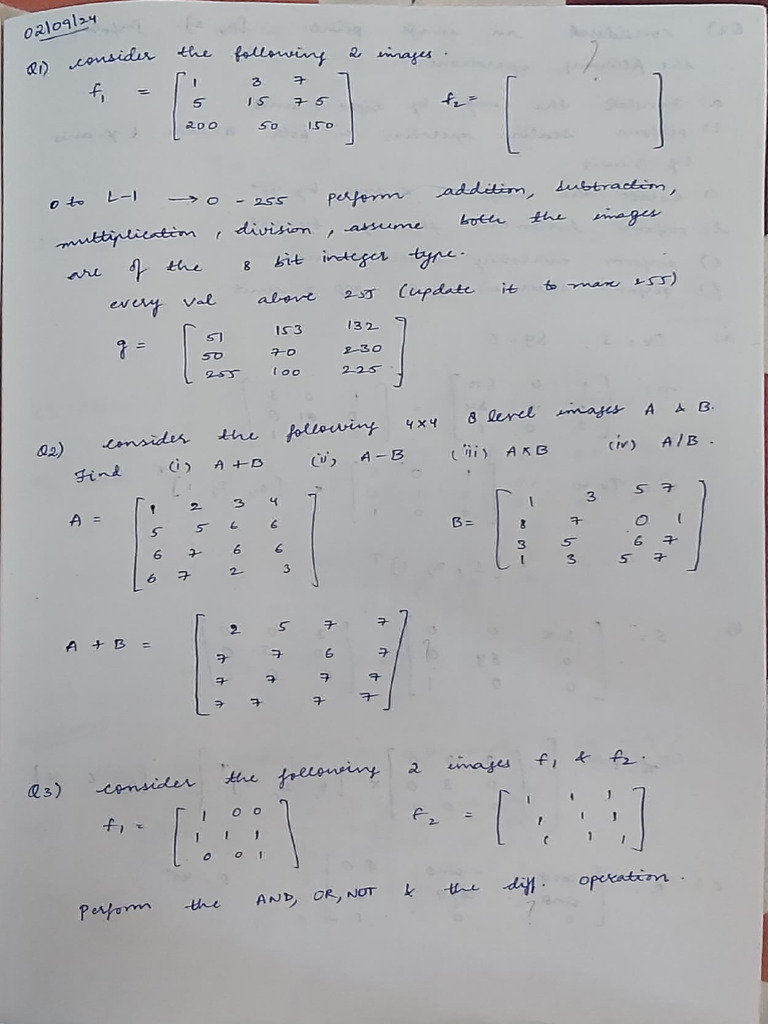 02/09/24
Q1) consider the following 2 images.
f₁ = [ 1 3 7 f₂ = [ ]
5 15 75
200 50 150 ]
0 to L-1 → 0 - 255 perform addition, subtraction,
multiplication, division, assume both the images
are of the 8 bit integer type.
every val above 255 (update it to max 255)
g = [ 51 153 132
50 70 230
255 100 225 ]
Q2) consider the following 4x4 8 level images A & B.
Find (i) A+B (ii) A-B (iii) A×B (iv) A/B.
A = [ 1 2 3 4 B = [ 1 3 5 7
5 5 6 6 8 7 0 1
6 7 6 6 3 5 6 7
6 7 2 3 ] 1 3 5 7 ]
A + B = [ 2 5 7 7
7 7 6 7
7 7 7 7
7 7 7 7 ]
Q3) consider the following 2 images f₁ & f₂.
f₁ = [ 1 0 0 f₂ = [ 1 1 1
1 1 1 1 1 1
0 0 1 ] 1 1 1 ]
Perform the AND, OR, NOT & the diff. operation.